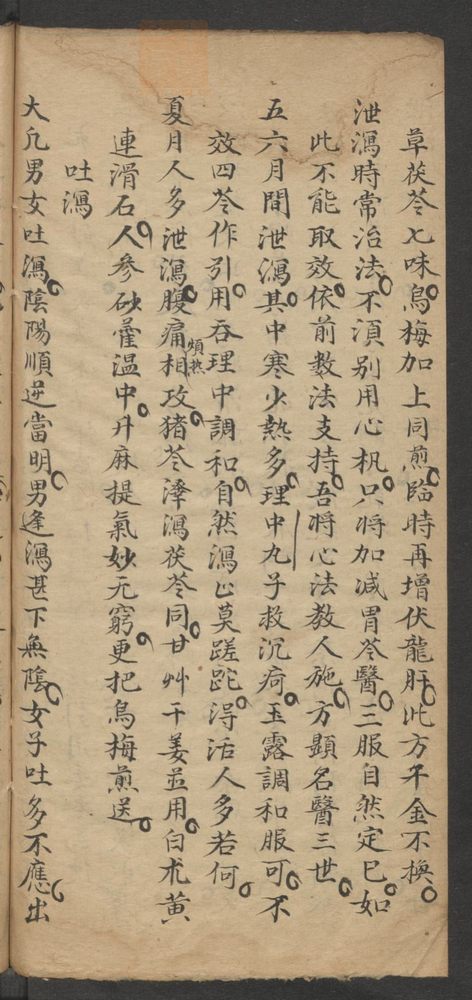 草茯苓七味。烏梅加上同煎。臨時再增伏龍肝。此方千金不換。
泄瀉時常治法。不湏别用心机。只将加减胃苓醫。三服自然定已。如
此不能取效。依前数法支持。吾将心法教人施。方顯名醫三世。
五六月間泄瀉。其中寒少熱多。理中九子救沉疴。玉露調和服可。不
效四苓作引。用吞理中調和。自然瀉止莫蹉跎。淂活人多若何。
夏月人多泄瀉。腹痛煩热相攻。猪苓澤瀉茯苓同。甘艸干姜並用。白朮黄
連滑石人參。砂藿温中。升麻提氣妙无窮。更把烏梅煎送。
吐瀉
大凢男女吐瀉。陰陽順逆當明。男逢瀉甚下無陰。女子吐多不應。出